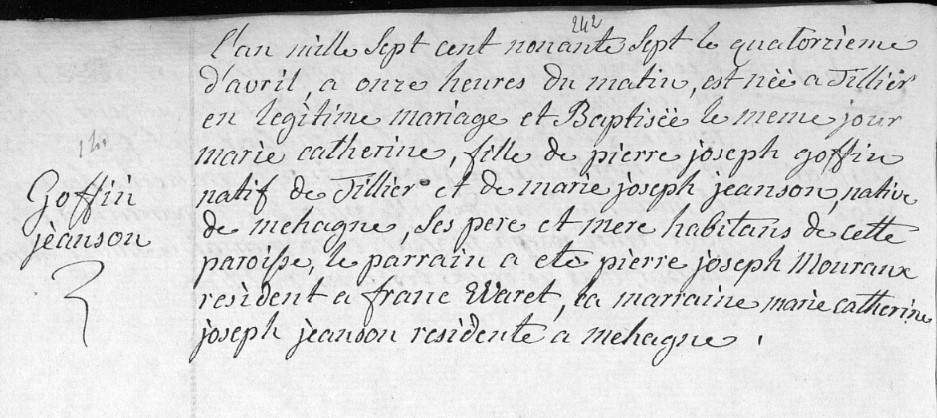 242
L'an mille Sept cent nonante Sept le quatorzieme
d'avril, a onze heures du matin, est née a Tillier
en legitime mariage et Baptisée le meme jour
marie catherine, fille de pierre joseph goffin
natif de Tillier et de marie joseph jeanson, native
de mehagne, Ses pere et mere habitans de cette
paroisse, le parrain a eté pierre joseph Mouraux
resident a franc Waret, la marraine marie catherine
joseph jeanson residente a mehagne.
Goffin
jeanson